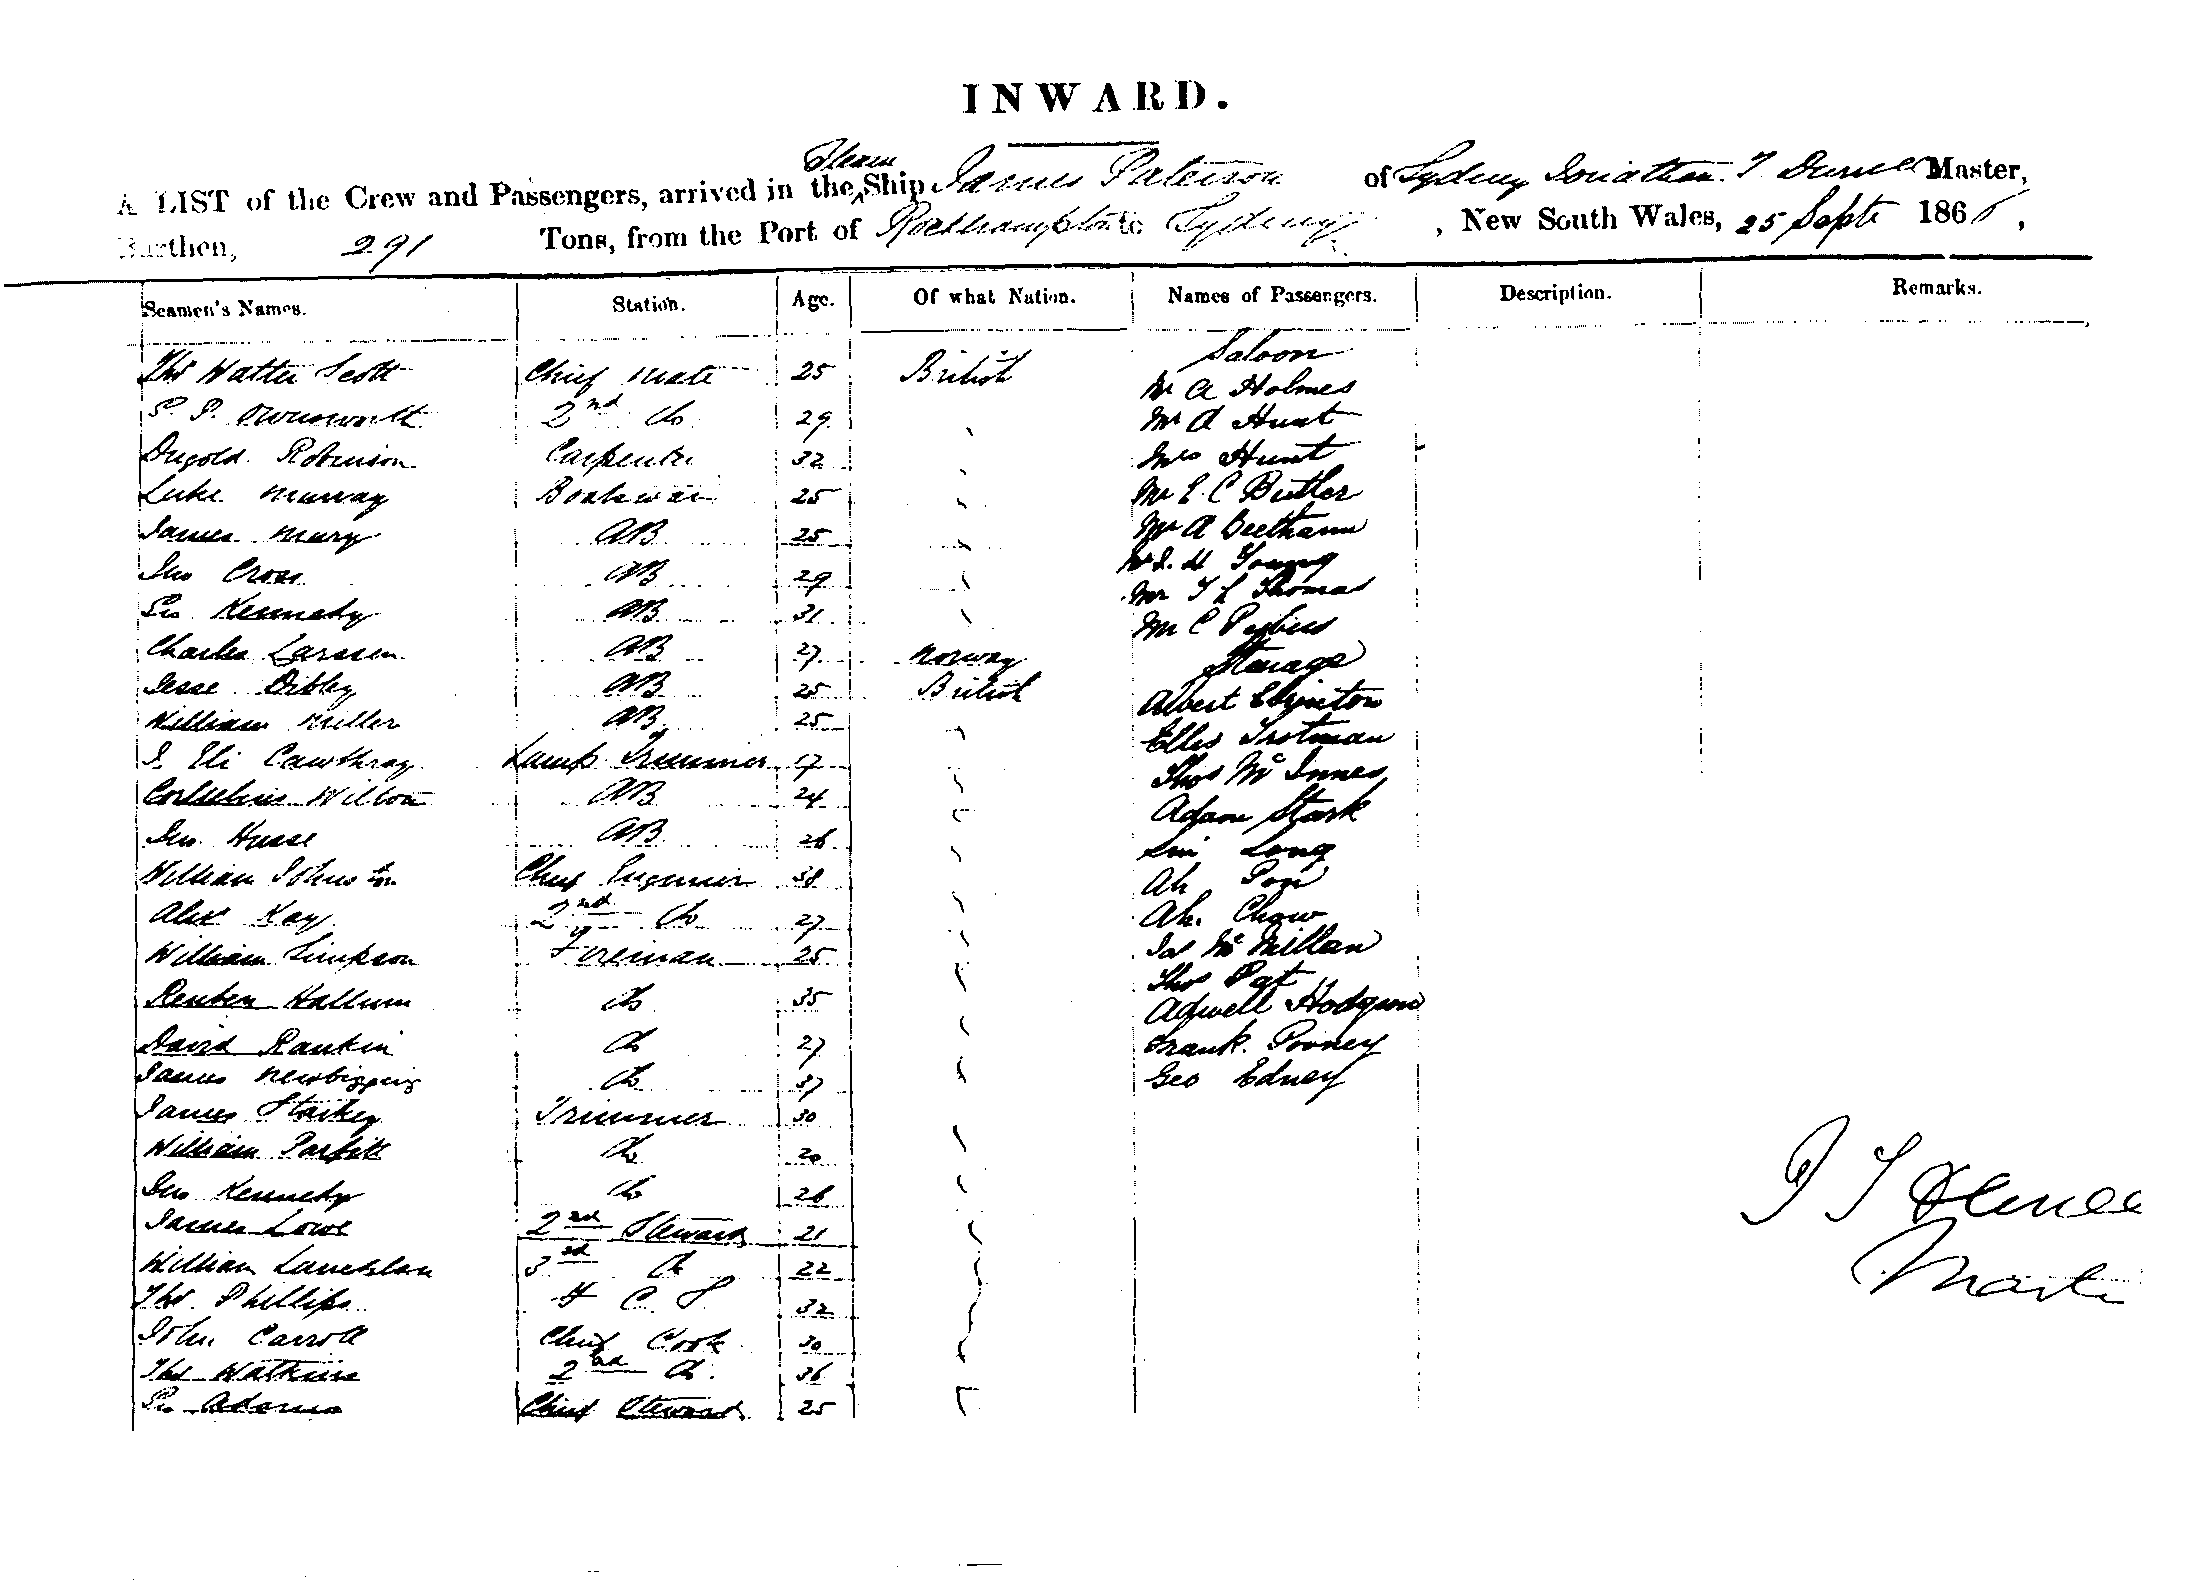 INWARD.
A LIST of the Crew and Passengers, arrived in the Steam Ship James Paterson of Sydney Jonathan T Master,
Burthen, 291 Tons, from the Port of Rockhampton to Sydney, New South Wales, 25 Septr 186
Seamen's Names. Station. Age. Of what Nation. Names of Passengers. Description. Remarks.
Saloon
Thos Walter Scott Chief Mate 25 British Mr A Holmes
2nd do 29 Mr A Hunt
Dugold Robinson Carpenter 32 Mrs Hunt
Luke Murray Boatswain 25 Mr E C Butler
James Mury AB 25 Mr A Beetham
Jno Cross AB 29 Young
Geo Kennedy AB 31 Mr T L Thomas
Mr C
Charles Larssen AB 27 Norway Sterage
Jesse Dibley AB 25 British Albert
William Miller AB 25 Elles Trotman
J. Eli Cawthray Lamp Trimmer 17 Thos McInnes
Cornelius Wilson AB 24 Adam Stark
Jno Husse AB 26 Long
William Johnston Chief Engineer 38 Ah
Alex Kay 2nd do 27 Ah Chow
William Simpson Fireman 25 Jas McMillan
Thos
Reuben Hallum do 35 Hodgson
David Rankin do 27 Frank
James Newbigging do 37 Geo Edney
James Starkey Trimmer 30
William Parfitt do 20
Jno Kennedy do 26
James Lowe 2nd Steward 21
William 3rd do 22
Thos Phillips F C S 32
John Carroll Chief Cook 30
Thos Watkins 2nd do 36
Geo Adams Chief Steward 25
J T
Master